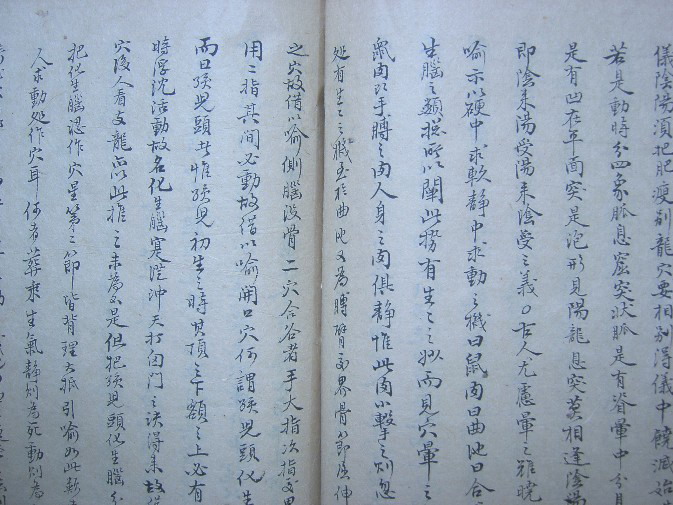 儀陰陽須把肥瘦別龍穴要相別得儀中饒減始
若是動時分四象脈息窟突狀脈是有脊暈中分見
是有凹在平面突是泡形見陽龍息突葉相逢陰
即陰來陽受陽來陰受之義〇古人尤慮暈之難曉
喻示以硬中求軟靜中求動之機曰鼠肉曰曲池曰合
生腦之類摸所以闡此嫩有生之之妙而見穴暈之
鼠肉即手膊之肉人身之肉俱靜惟此肉小擊之則忽
処有生之之機至於曲池又為膊臂交界骨節屈伸
之穴故借以喻側腦沒骨二穴合谷者手大指次指交
用二指其間必動故借以喻開口穴何謂孩兒頭化生
而曰孩兒頭者惟孩兒初生之時其頂之下額之上必有
時浮沈活動故名化生腦寔從沖天打囟門之訣得來故
穴後人看支龍亦以此推之未為不是但把孩兒頭化生腦分
把化生腦認作穴星第二節皆背理大抵引喻如此
人求動処作穴耳何者葬乘生氣靜則為死動則為